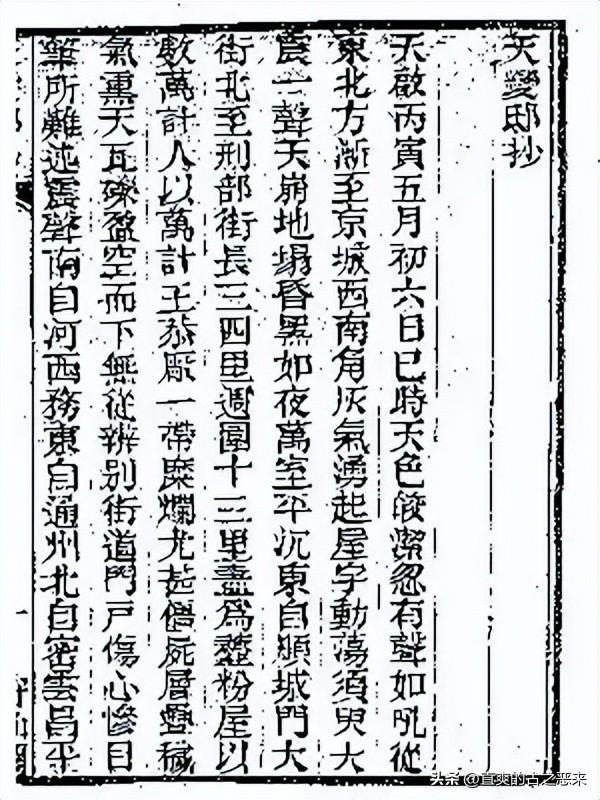 天變邸抄
天啟丙寅五月初六日巳時天色皎潔忽有聲如吼從
東北方漸至京城西南角灰氣湧起屋宇動蕩須臾大
震一聲天崩地塌昏黑如夜萬室平沉東自順城門大
街北至刑部街長三四里週圍十三里盡爲虀粉屋以
數萬計人以萬計王恭廠一帶糜爛尤甚僵屍層疊穢
氣熏天瓦礫盈空而下無從辨別街道門戶傷心慘目
筆所難述震聲南自河西務東自通州北自密雲昌平
头条 @直爽的古之恶来